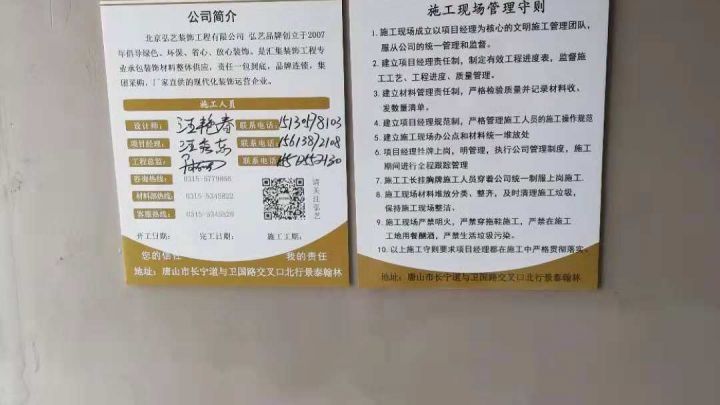 公司简介
北京弘艺装饰工程有限公司 弘艺品牌创立于2007
年倡导绿色、环保、省心、放心装饰。是汇集装饰工程专
业承包装饰材料整体供应，责任一包到底，品牌连锁，集
团采购，厂家直供的现代化装饰运营企业。
施工人员
设计师： 汪艳春 联系电话：
项目经理： 联系电话：15613892108
工程总监： 联系电话：
咨询热线： 0315-5779866
材料部热线： 0315-5345822
客服热线： 0315-5345826
请关注弘艺
开工日期： 完工日期： 施工工期：
您的信任 我的责任
地址：唐山市长宁道与卫国路交叉口北行景泰翰林
施工现场管理守则
1. 施工现场成立以项目经理为核心的文明施工管理团队，
服从公司的统一管理和监督。
2. 建立项目经理责任制，制定有效工程进度表，监督施
工工艺、工程进度、质量管理。
3. 建立材料管理责任制，严格检验质量并记录材料收、
发数量清单。
4. 建立项目经理规范制，严格管理施工人员的施工操作规范
5. 建立施工现场办公点和材料统一堆放处
6. 项目经理挂牌上岗，明管理，执行公司管理制度，施工
期间进行全程跟踪管理
7. 施工工长挂胸牌施工人员穿着公司统一制服上岗施工.
8. 施工现场材料堆放分类、整齐，及时清理施工垃圾，
保持施工现场整洁.
9. 施工现场严禁明火，严禁穿拖鞋施工，严禁在施工
工地用餐酗酒，严禁生活垃圾污染。
10. 以上施工守则要求项目经理都在施工中严格贯彻落实
地址：唐山市长宁道与卫国路交叉口北行景泰翰林